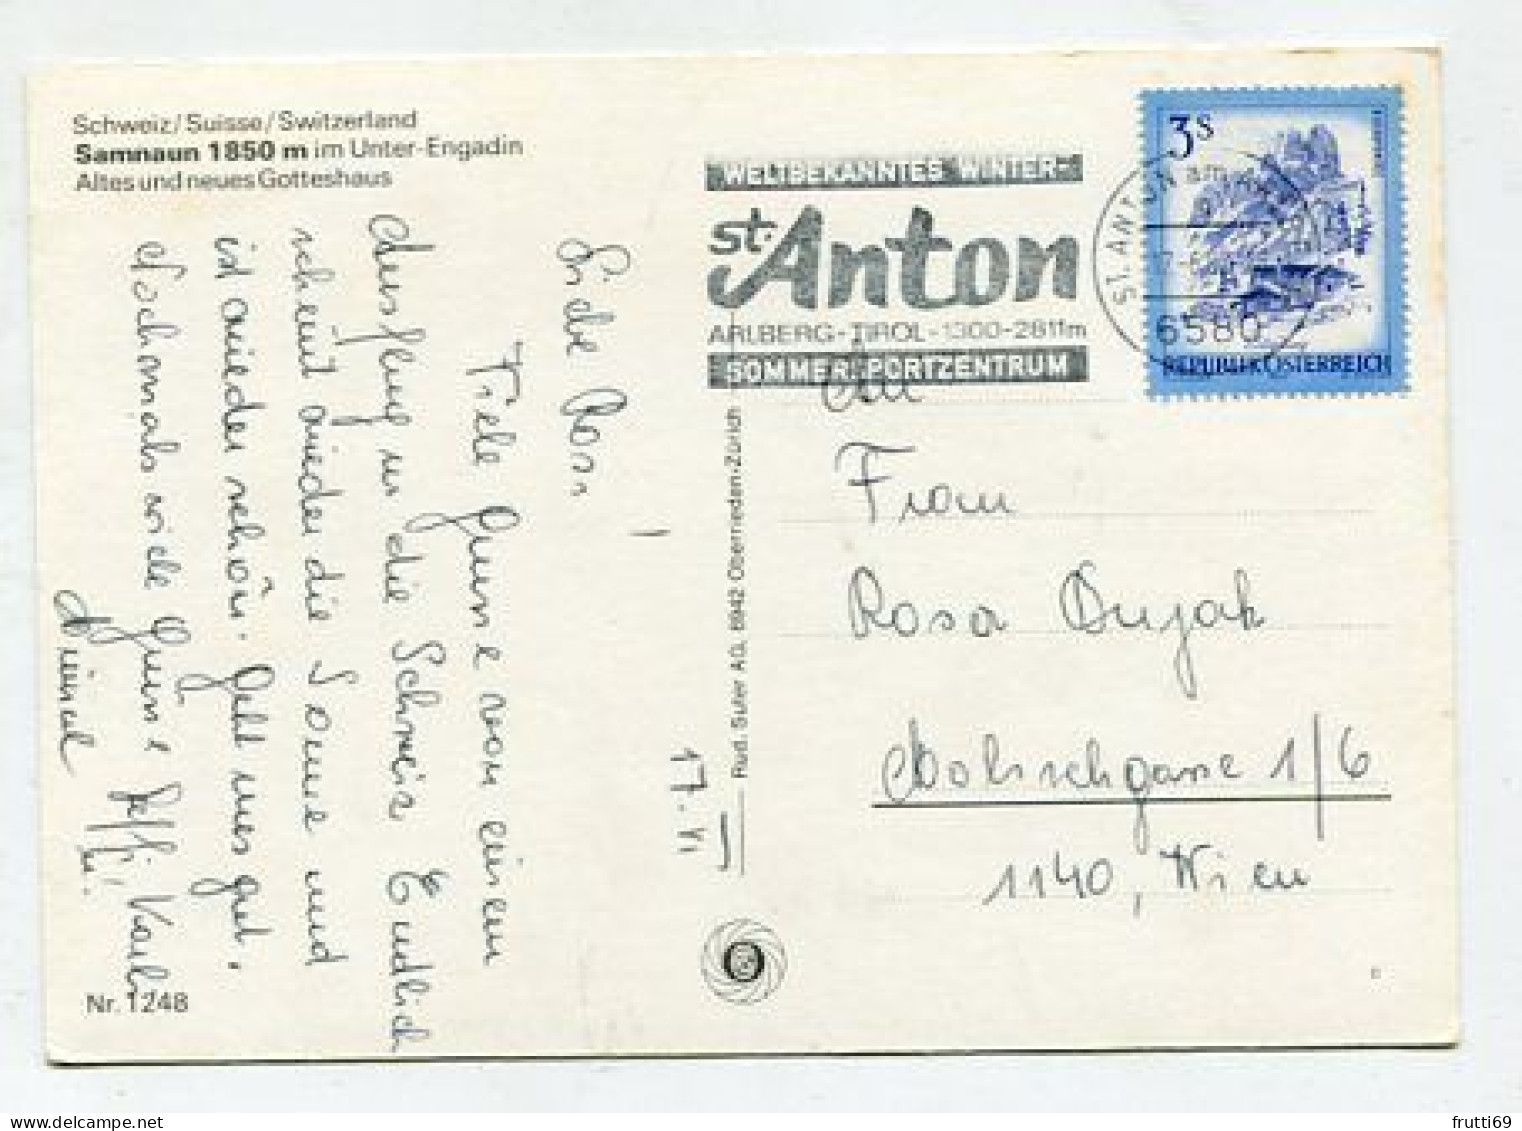 Schweiz/Suisse/Switzerland
Samnaun 1850 m im Unter-Engadin
Altes und neues Gotteshaus
Liebe Rosi,
Viele Grüsse von einem
Ausflug in die Schweiz Endlich
scheint wieder die Sonne und
ist wieder schön. Geht uns gut.
Nochmals viele Grüsse Steffi Karli
17. VI
Nr. 1248
Rud. Suter AG, 8942 Oberrieden-Zürich
WELTBEKANNTES WINTER-
St. Anton
ARLBERG-TIROL-1300-2811m
SOMMERSPORTZENTRUM
ST. ANTON am
6580
3S
REPUBLIK ÖSTERREICH
An
Frau
Rosa Dujak
1/6
1140, Wien
frutti69